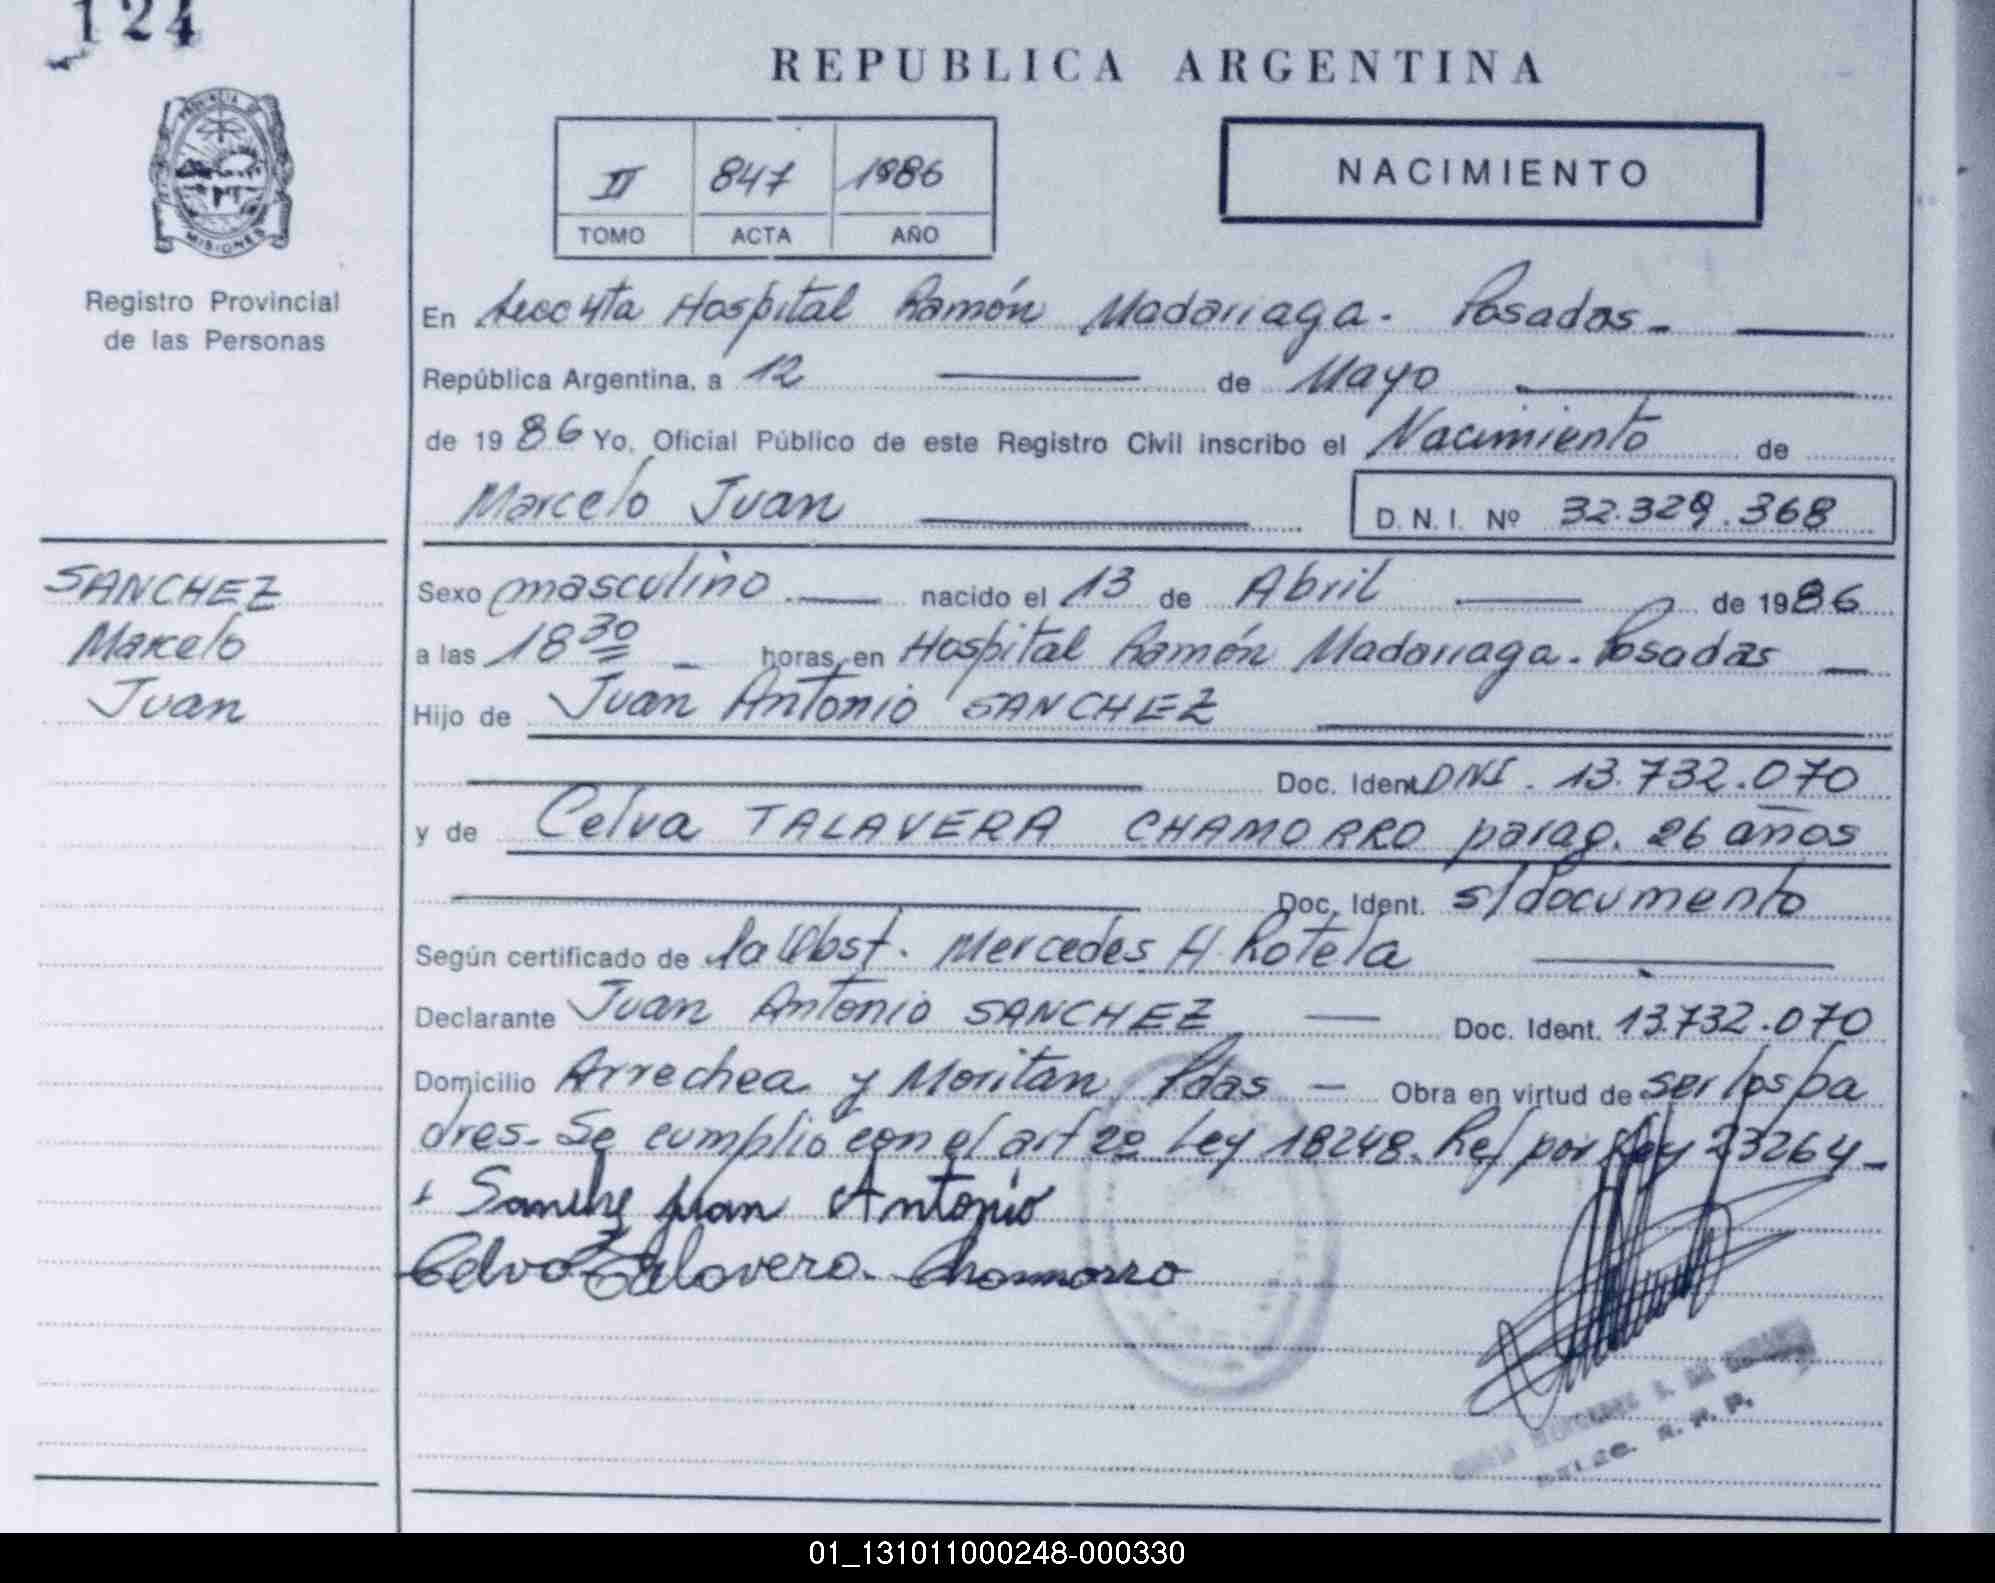 124
REPUBLICA ARGENTINA
PROVINCIA DE
MISIONES
Registro Provincial
de las Personas
II 847 1986
TOMO ACTA AÑO
NACIMIENTO
En Secc 4ta Hospital Ramón Madariaga. Posadas.
República Argentina, a 12 de Mayo
de 1986 Yo, Oficial Público de este Registro Civil inscribo el Nacimiento de
Marcelo Juan D.N.I. Nº 32.329.368
SANCHEZ
Marcelo
Juan
Sexo masculino nacido el 13 de Abril de 1986
a las 18 30 horas, en Hospital Ramón Madariaga. Posadas
Hijo de Juan Antonio SANCHEZ
Doc. Ident. DNI. 13.732.070
y de Celva TALAVERA CHAMORRO parag. 26 años
Doc. Ident. s/documento
Según certificado de la Obst. Mercedes H. Rotela
Declarante Juan Antonio SANCHEZ Doc. Ident. 13.732.070
Domicilio Arrechea y Moritan Pdas Obra en virtud de ser los pa
dres. Se cumplió con el art 2º Ley 18248. Ref por Ley 23264
Juan Antonio
Celva Talavera. Chamorro
R. P. P.
01_131011000248-000330